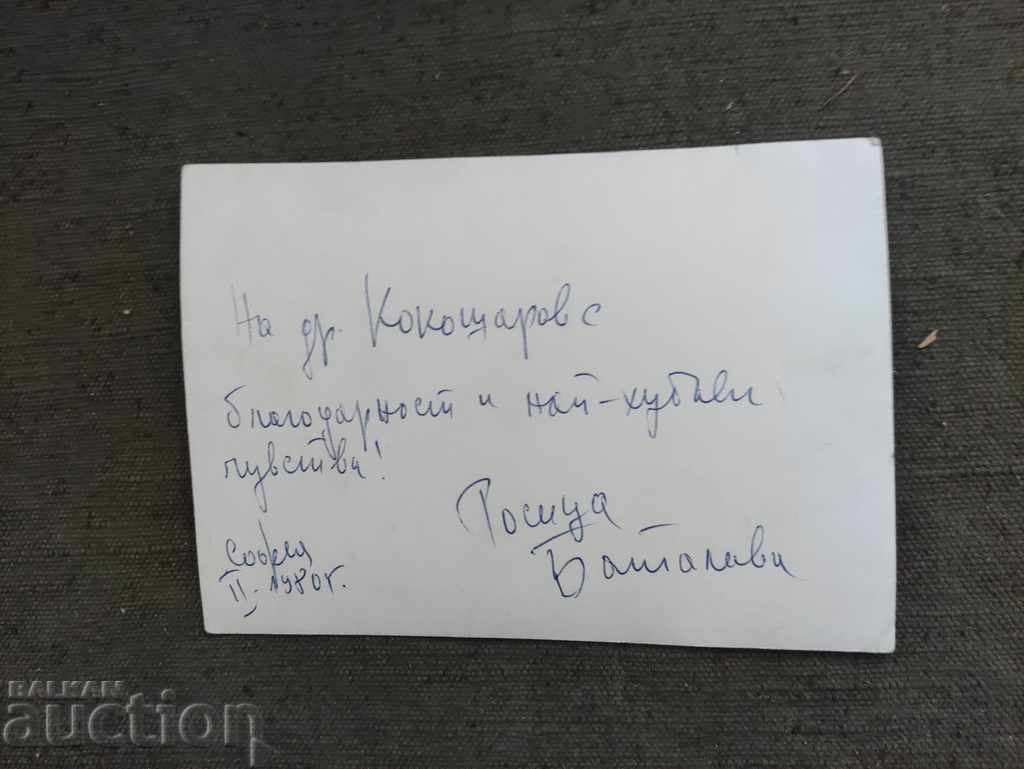 На др. Кокошаров с
благодарност и най-хубави
чувства!
Росица
Баталова
София
II. 1980 г.
BALKAN
auction